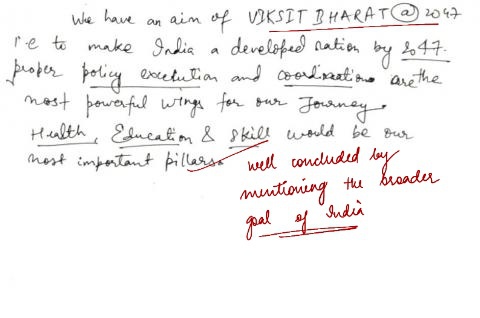 We have an aim of VIKSIT BHARAT @ 2047
i.e to make India a developed nation by 2047.
proper policy execution and coordination are the
most powerful wings for our Journey.
Health, Education & skill would be our
most important pillars.
well concluded by
mentioning the broader
goal of India